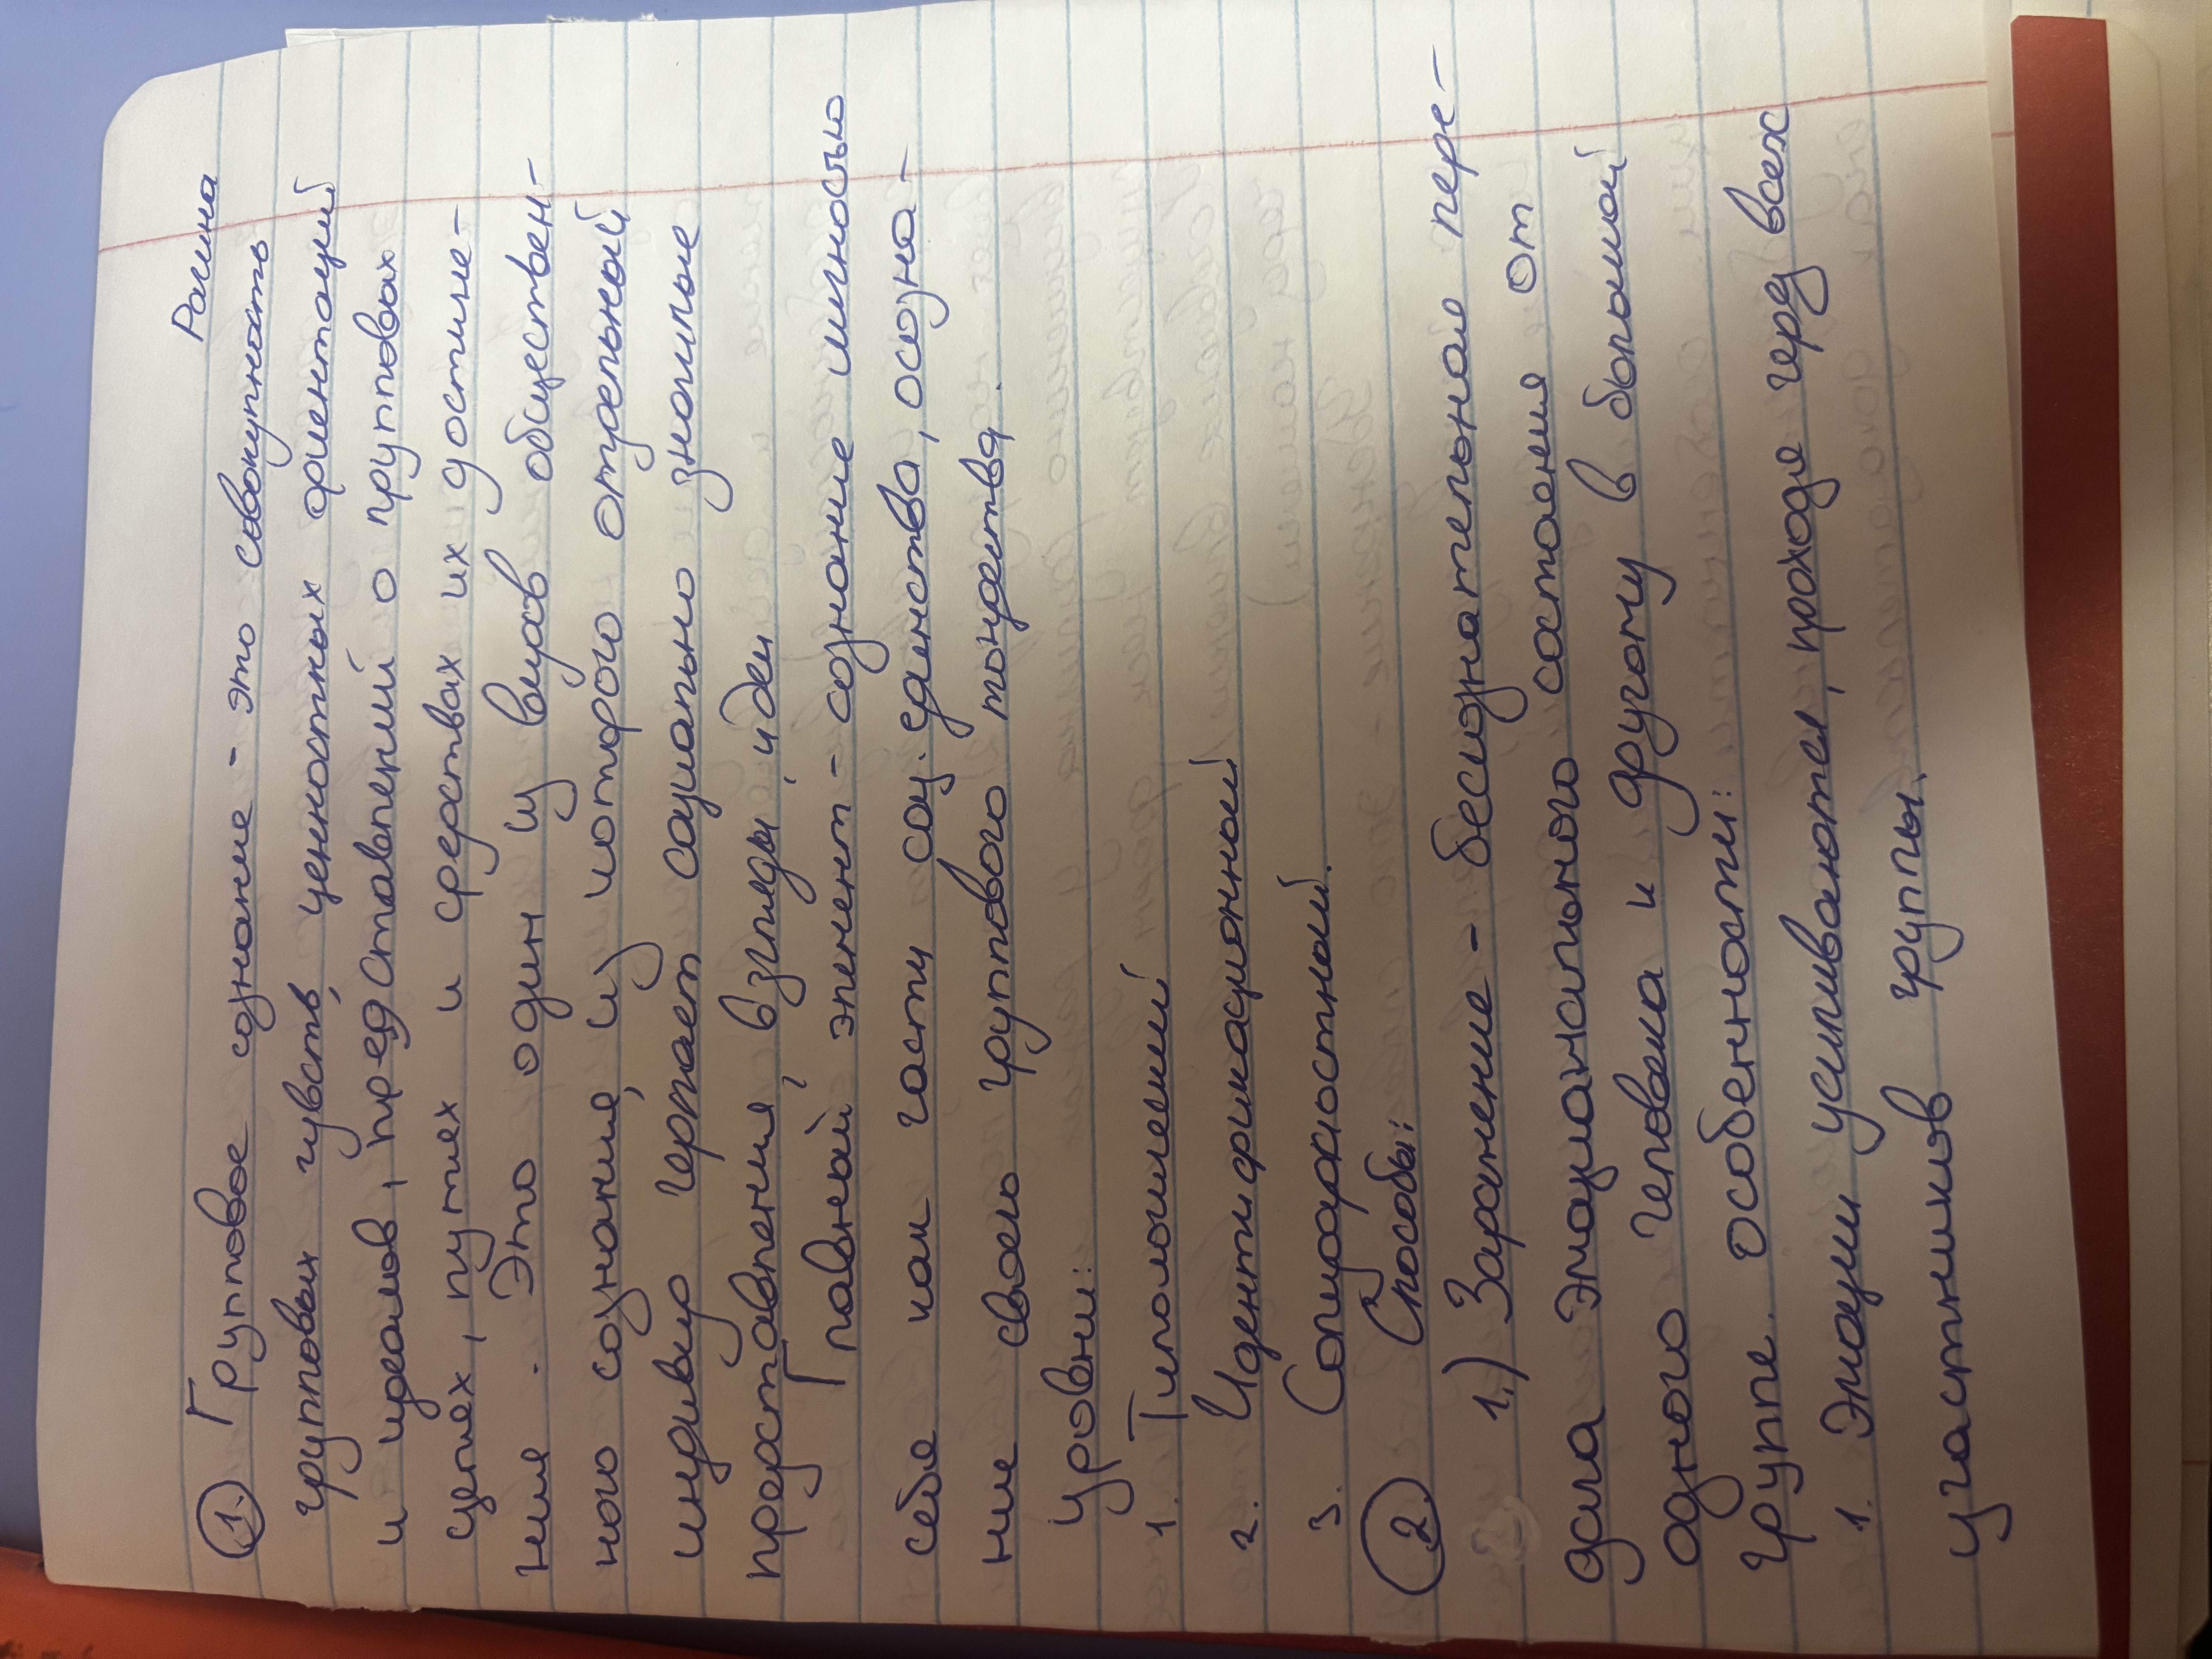 Рашна
1. Групповое сознание - это совокупность
групповых чувств, ценностных ориентаций
и идеалов, представлений о групповых
целях, путях и средствах их достиже-
ния. Это один из видов обществен-
ного сознания, из которого отдельный
индивид черпает социально значимые
представления, взгляды, идеи
Главный элемент - сознание личностью
себя как части соц. единства, осозна-
ние своего группового тождества.
уровни:
1. Типологический
2. Идентификационный
3. Солидарностный.
2. Способы:
1.) Заражение - бессознательная пере-
дача эмоционального состояния от
одного человека к другому в большой
группе. Особенности:
1. Эмоции усиливаются, проходя через всех
участников группы.